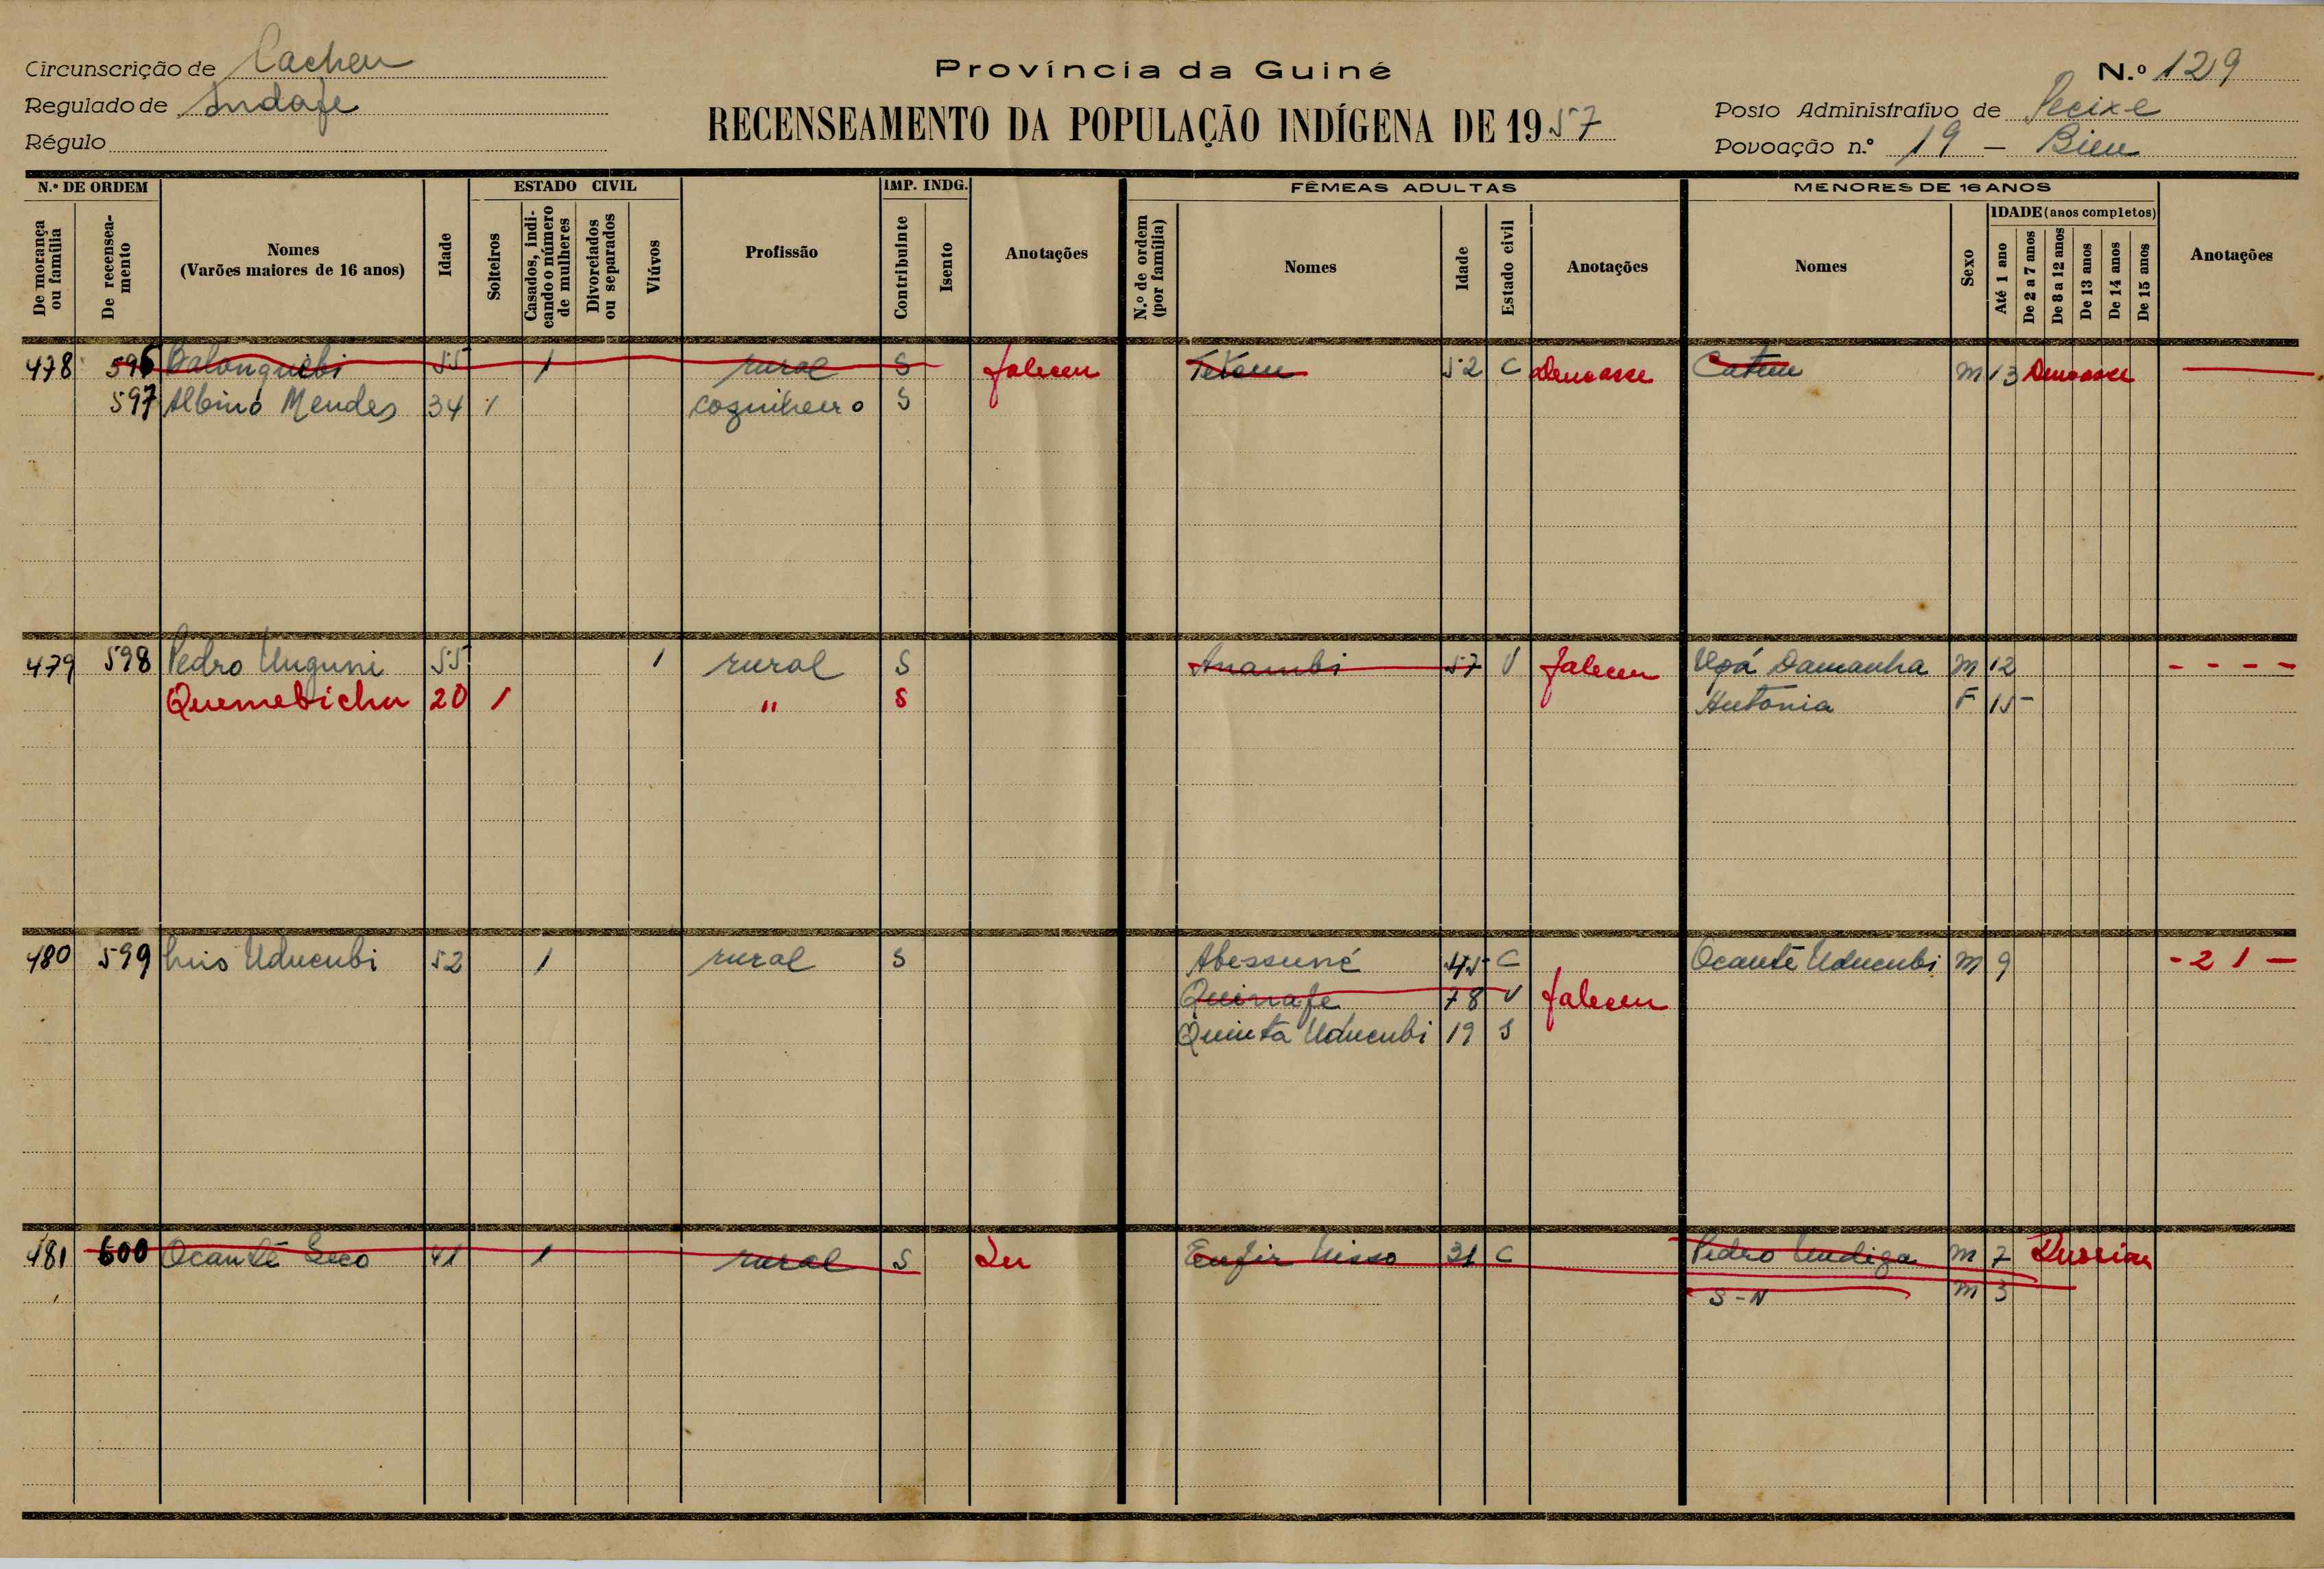 Circunscrição de Cacheu
Província da Guiné
N.º 129
Regulado de Indafe
RECENSEAMENTO DA POPULAÇÃO INDÍGENA DE 1957
Posto Administrativo de Pecixe
Régulo
Povoação n.º 19 - Bieu
N.º DE ORDEM
ESTADO CIVIL
IMP. INDG.
FÊMEAS ADULTAS
MENORES DE 16 ANOS
De morança ou família
De recenseamento
Nomes
(Varões maiores de 16 anos)
Idade
Solteiros
Casados, indicando o número de mulheres
Divorciados ou separados
Viúvos
Profissão
Contribuinte
Isento
Anotações
N.º de ordem (por família)
Nomes
Idade
Estado civil
Anotações
Nomes
Sexo
IDADE (anos completos)
Até 1 ano
De 2 a 7 anos
De 8 a 12 anos
De 13 anos
De 14 anos
De 15 anos
Anotações
478 596 Balonquebi 55 1 rural S faleceu Tetom 52 C M 13
597 Albino Mendes 34 1 cozinheiro S
479 598 Pedro Unguni 55 1 rural S Anambi 57 V faleceu Upá Damanha M 12 - - - -
Quemebichu 20 1 " S Antonia F 15
480 599 Luis Uducubi 52 1 rural S Abessuné 45 C Ocantê Uducubi M 9 - 2 1 -
Quinafe 78 V faleceu
Quinta Uducubi 19 S
481 600 Ocantê Seco 41 1 rural S Enfir Nisso 31 C Pedro Undiga M 7
S-N M 3